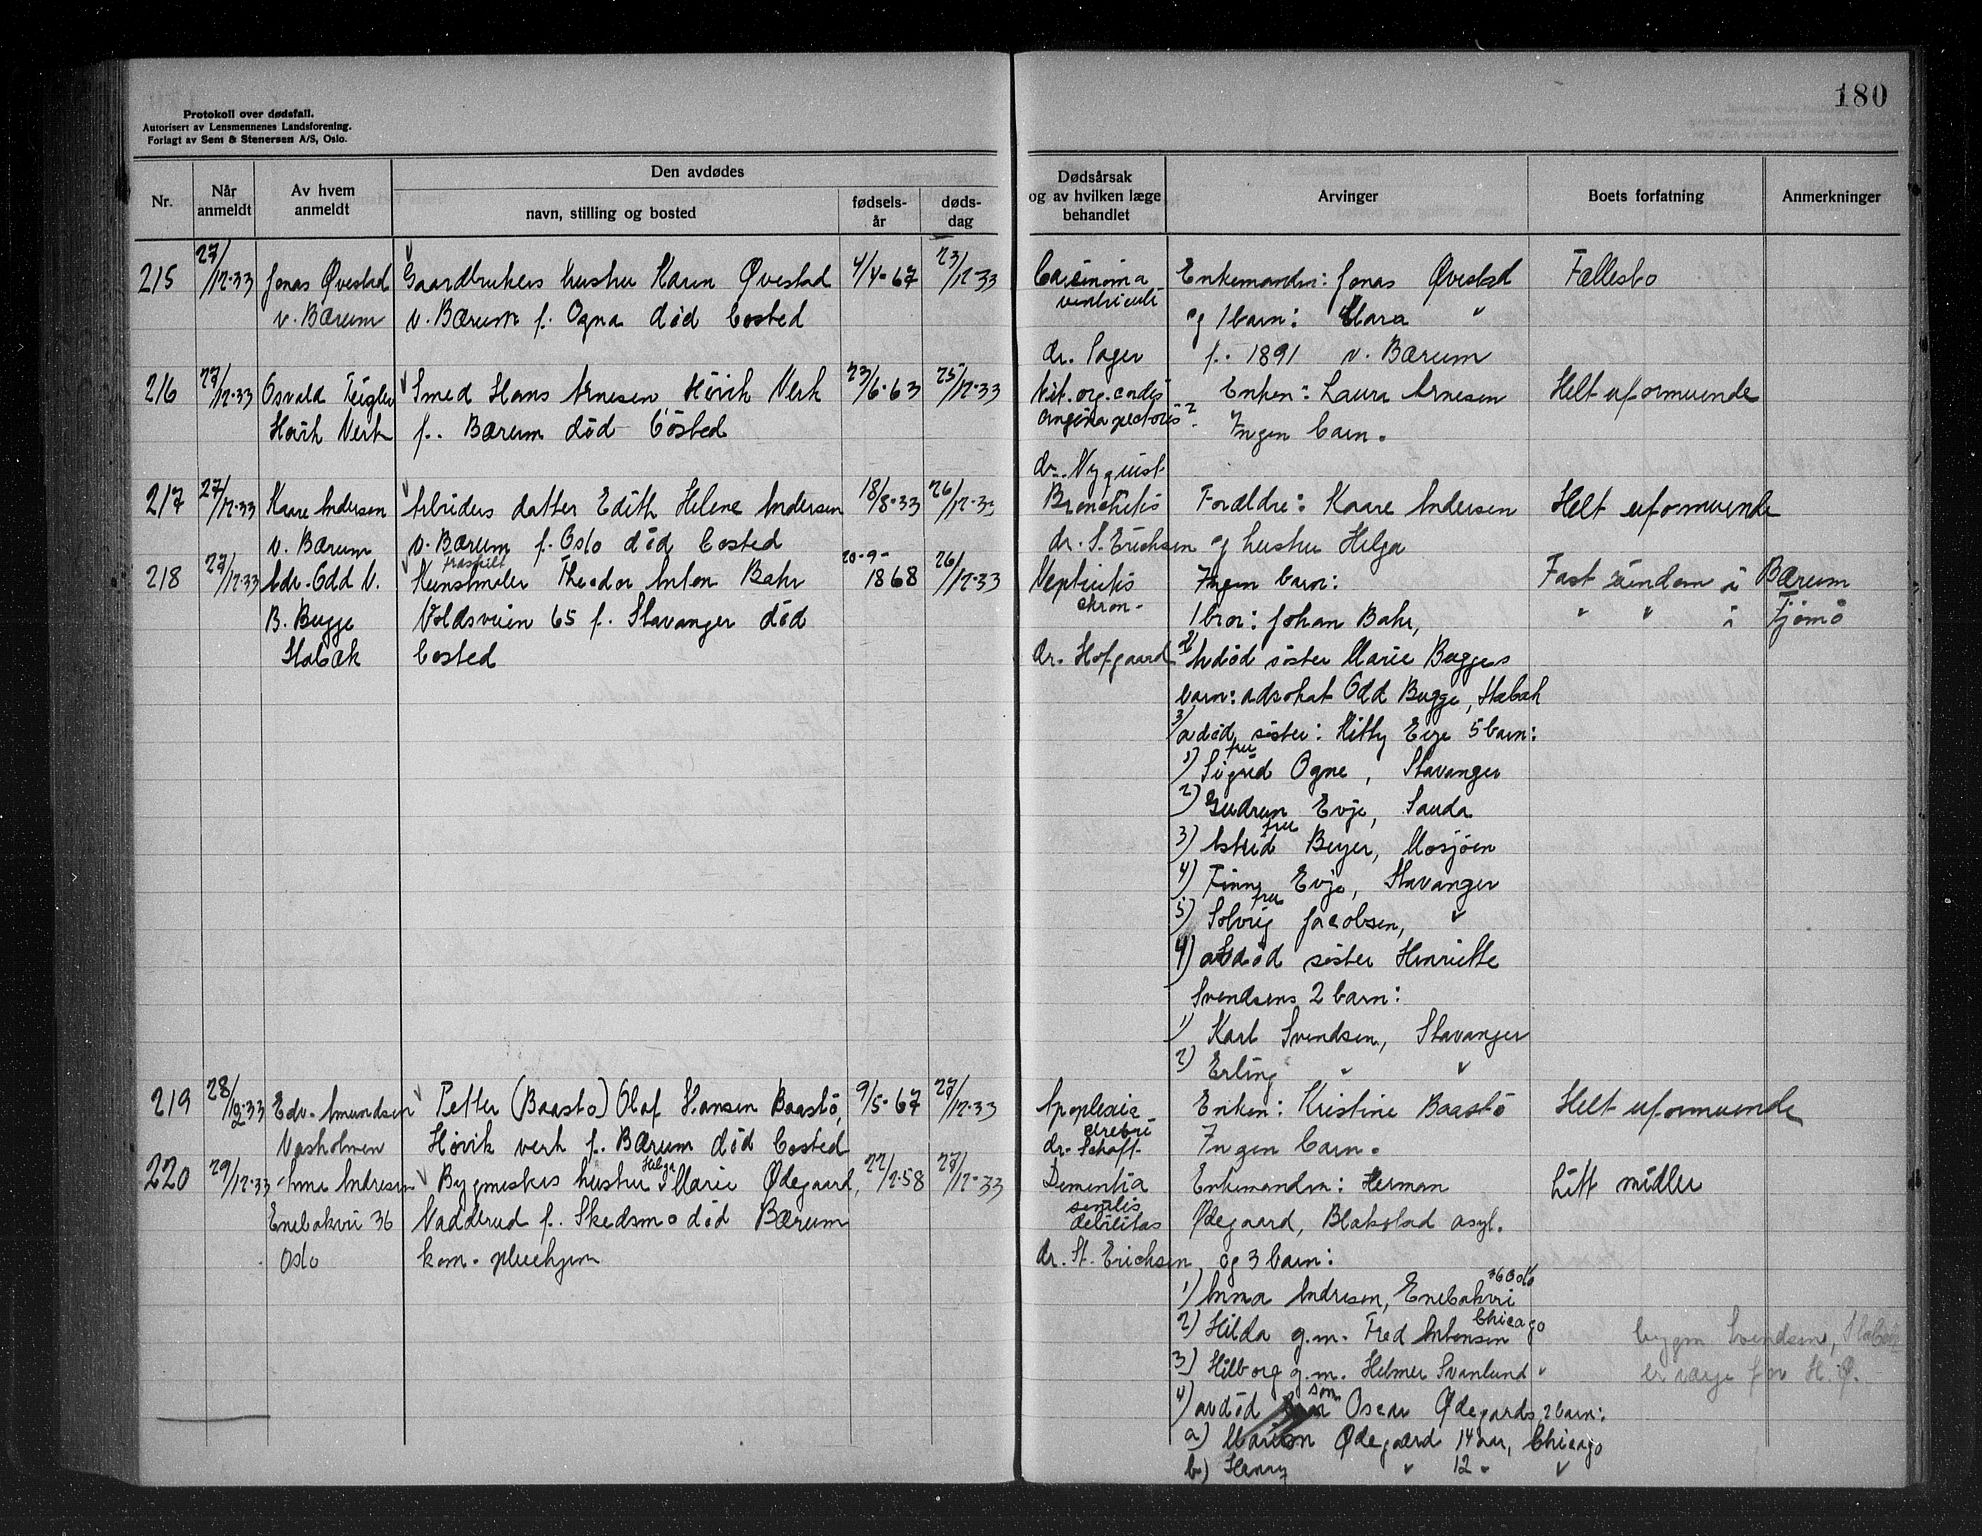 180
Protokoll over dødsfall.
Autorisert av Lensmennenes Landsforening.
Forlagt av Sem & Stenersen A/S, Oslo.
Nr.
Når anmeldt
Av hvem anmeldt
Den avdødes
navn, stilling og bosted
fødsels-år
døds-dag
Dødsårsak og av hvilken læge behandlet
Arvinger
Boets forfatning
Anmerkninger
215 27/12-33 Jonas Øvestad Gaardbrukers hustru Karen Øvestad 4/4-67 23/12-33 Carcinoma Enkemanden: Jonas Øvestad Fællesbo
v. Bærum v. Bærum f. Ogna død bosted ventriculi og 1 barn: Clara "
dr. Sager f. 1891 v. Bærum
216 27/12-33 Osvald Teiglen Smed Hans Arnesen Høvik Verk 23/6-63 25/12-33 Vit. org. cordis Enken: Laura Arnesen Helt uformuende
Høvik Verk f. Bærum død bosted angina pectoris? Ingen barn.
dr. Nyquist
217 27/12-33 Kaare Andersen Arbeiders datter Edith Helene Andersen 18/8-33 26/12-33 Bronchitis Forældre: Kaare Andersen Helt uformuende
v. Bærum v. Bærum f. Oslo død bosted dr. S. Erichsen og hustru Helga
218 27/12-33 Adv. Odd V. fraskilt Kunstmaler Theodor Anton Bahr 20-9-1868 26/12-33 Nephritis Ingen barn: Fast eiendom i Bærum
B. Bugge Voldsveien 65 f. Stavanger død chron. 1 bror: Johan Bahr, " " i Tjømø
Stabæk bosted dr. Hofgaard 2/ Avdød søster Marie Bugges
barn: advokat Odd Bugge, Stabæk
3/ avdød søster: Kitty Evje 5 barn:
1) fru Sigrid Ogne, Stavanger
2) Gudrun Evje, Sauda
3) Astrid fru Beyer, Mosjøen
4) Finn Evje, Stavanger
5) Solveig fru Jacobsen, "
4) avdød søster Henriette
Svendsens 2 barn:
1) Karl Svendsen, Stavanger
2) Erling " "
219 28/12-33 Edv. Amundsen Petter (Baastø) Olaf Hansen Baastø, 9/5-67 27/12-33 Apoplexia Enken: Kristine Baastø Helt uformuende
Høvik verk f. Bærum død bosted cerebri dr. Schaff. Ingen barn.
220 29/12-33 Anna Andresen Bygmesters hustru Helga Marie Ødegaard, 27/12-33 Dementia Enkemanden: Herman Litt midler
Enebakvei 36 Nadderud f. Skedsmo død Bærum senilis debilitas Ødegaard, Blakstad asyl.
Oslo kom. pleiehjem dr. St. Erichsen og 3 barn:
1) Anna Andresen, Enebakvei 36 Oslo
2) Hilda g.m. Fred Antonsen Chicago
3) Hilborg g.m. Helmer Svanlund "
4) avdød søn Oscar Ødegaards 2 barn:
a) Marion Ødegaard 14 aar, Chicago
b) Harry " 12 " "
bygm Svendsen, Stabæk
er verge for H. Ø.